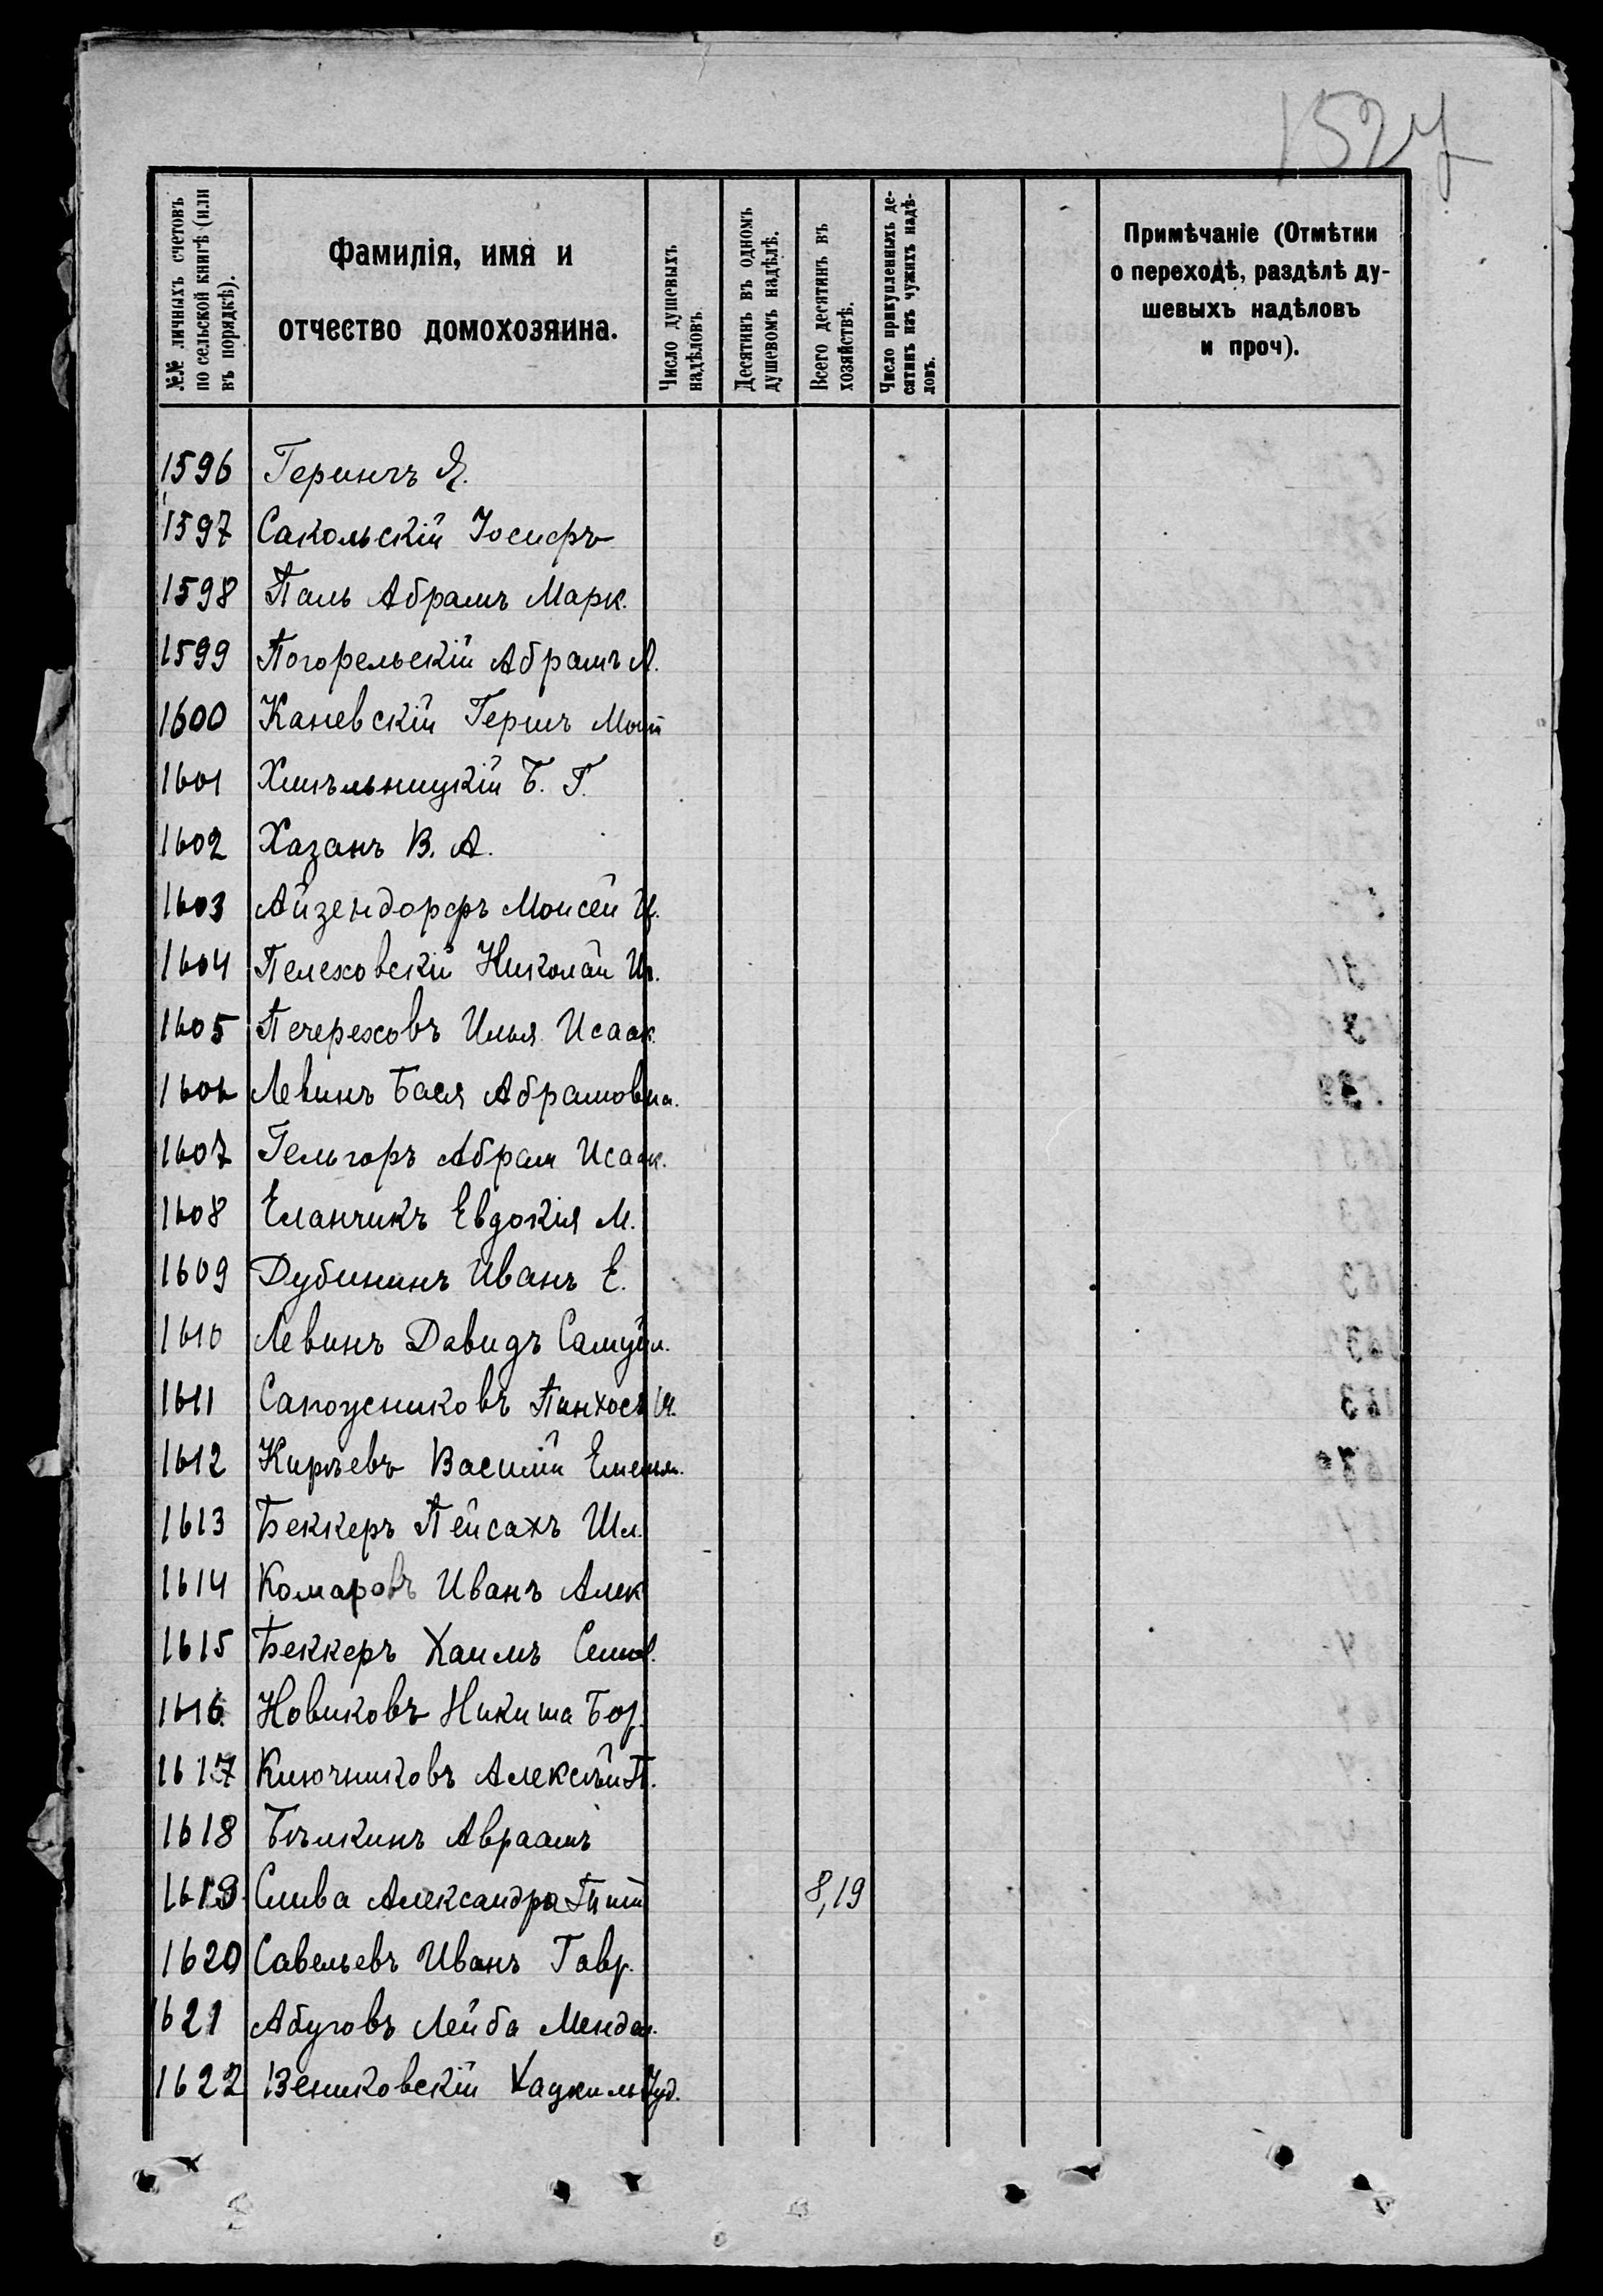 152
№№ личныхъ счетовъ по сельской книгѣ (или въ порядкѣ).
Фамилія, имя и отчество домохозяина.
Число душевыхъ надѣловъ.
Десятинъ въ одномъ душевомъ надѣлѣ.
Всего десятинъ въ хозяйствѣ.
Число прикупленныхъ десятинъ изъ чужихъ надѣловъ.
Примѣчаніе (Отмѣтки
о переходѣ, раздѣлѣ ду-
шевыхъ надѣловъ
и проч).
1596 Герингъ Я.
1597 Сакольскій Іосифъ
1598 Паль Абрамъ Марк.
1599 Погорельскій Абрамъ Л.
1600 Каневскій Гершъ Мош
1601 Хмѣльницкій Б. Г.
1602 Хазанъ В. А.
1603 Айзендорфъ Моисей И.
1604 Пелеховскій Николай Ил.
1605 Печереховъ Илья Исаак.
1606 Левинъ Бася Абрамовна.
1607 Гельгоръ Абрам Исаак.
1608 Еланчикъ Евдокія М.
1609 Дубининъ Иванъ Е.
1610 Левинъ Давидъ Самуил.
1611 Сапожниковъ Пинхосъ И.
1612 Кирѣевъ Василій Емельян.
1613 Беккеръ Пейсахъ Шл.
1614 Комаровъ Иванъ Алек
1615 Беккеръ Хаимъ
1616 Новиковъ Никита Бор.
1617 Ключниковъ Алексѣй П.
1618 Бѣлкинъ Авраамъ
1619 Слива Александра 8,19
1620 Савельевъ Иванъ Гавр.
1621 Абуговъ Лейба Мендел.
1622 Вениковскій Хацкиль Іуд.